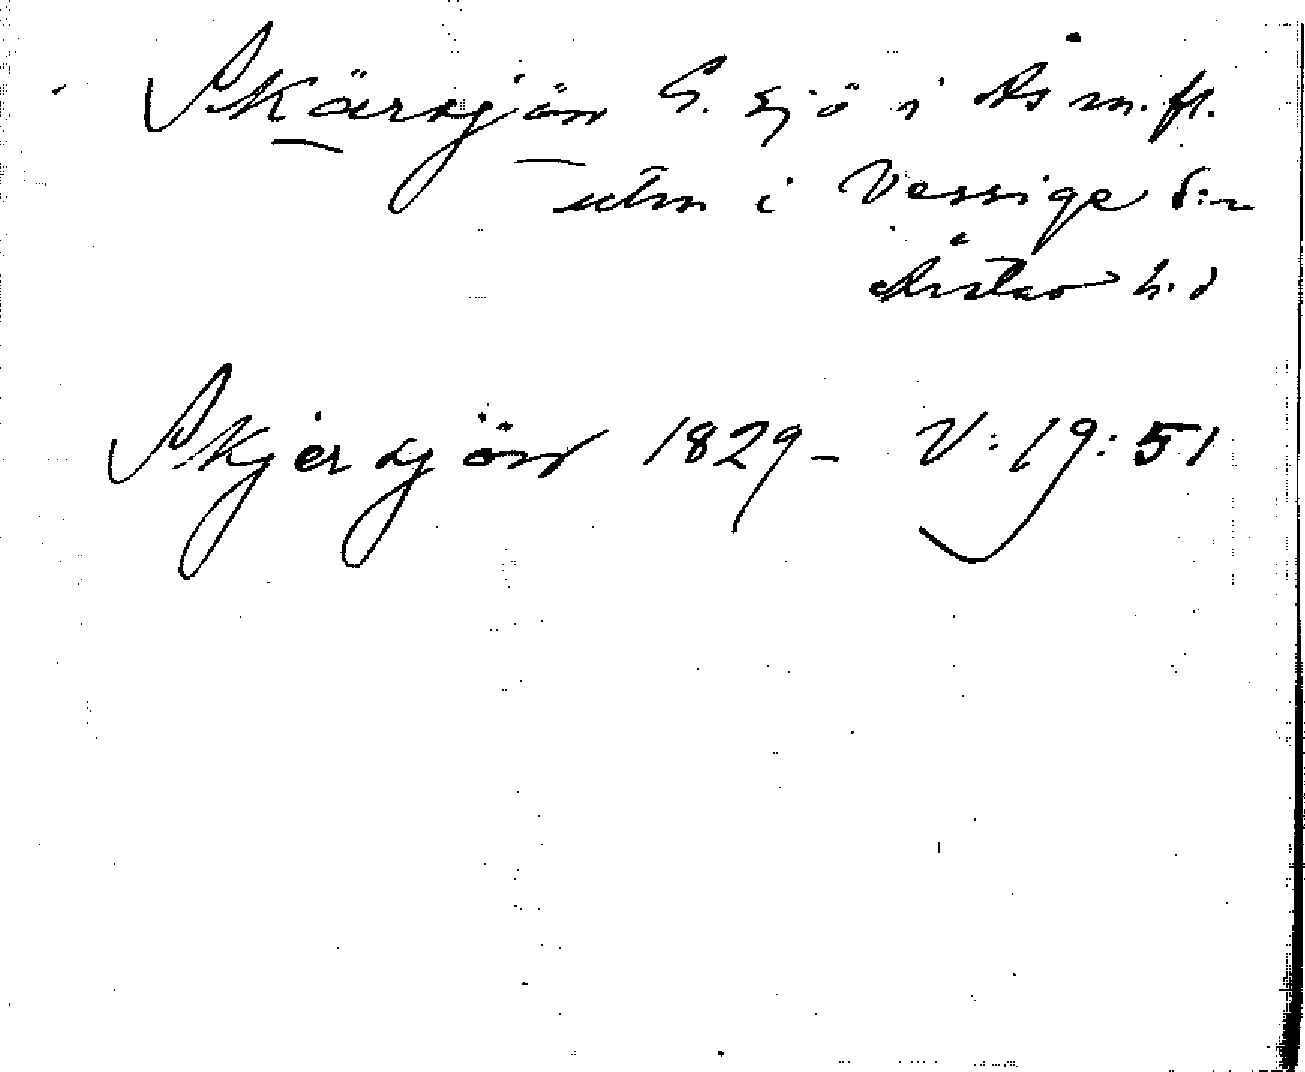 Skärsjön G. sjö i Ås m. fl.
utm i Vessige s:n
Årstad h:d
Skjersjön 1829 – V:19:51